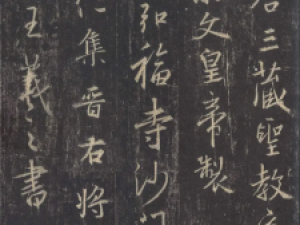 唐三藏聖教序
宗文皇帝製
弘福寺沙門
仁集晉右將
王羲之書